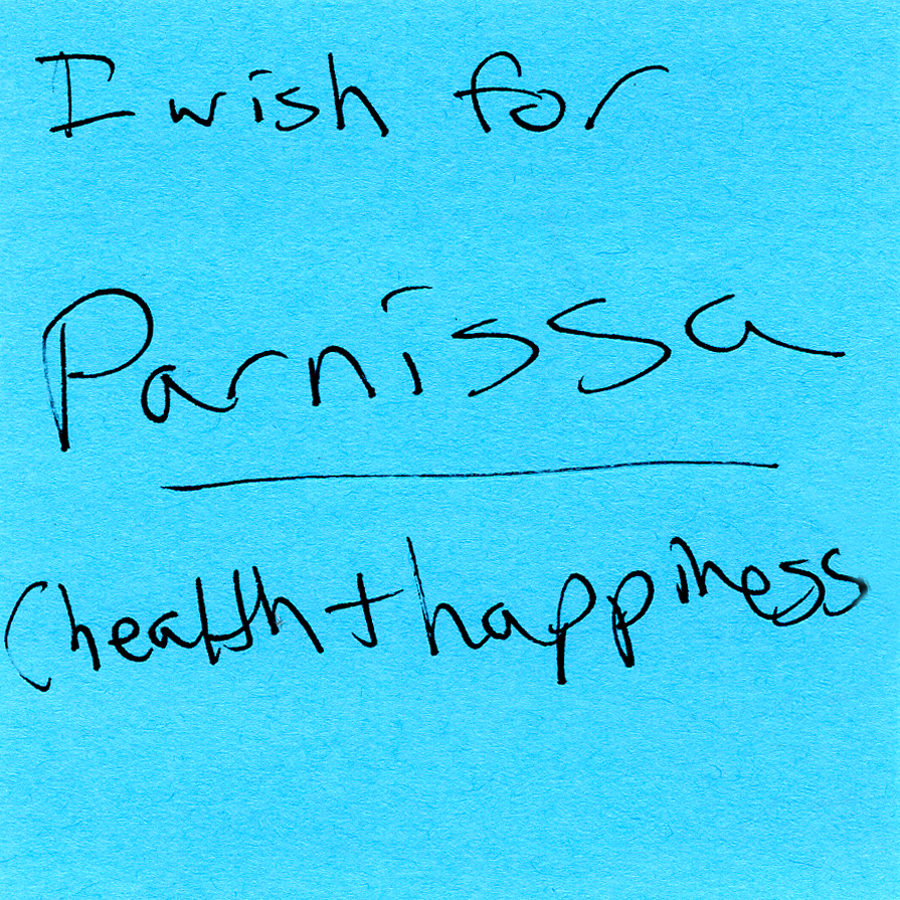 I wish for
Parnissa
(health + happiness